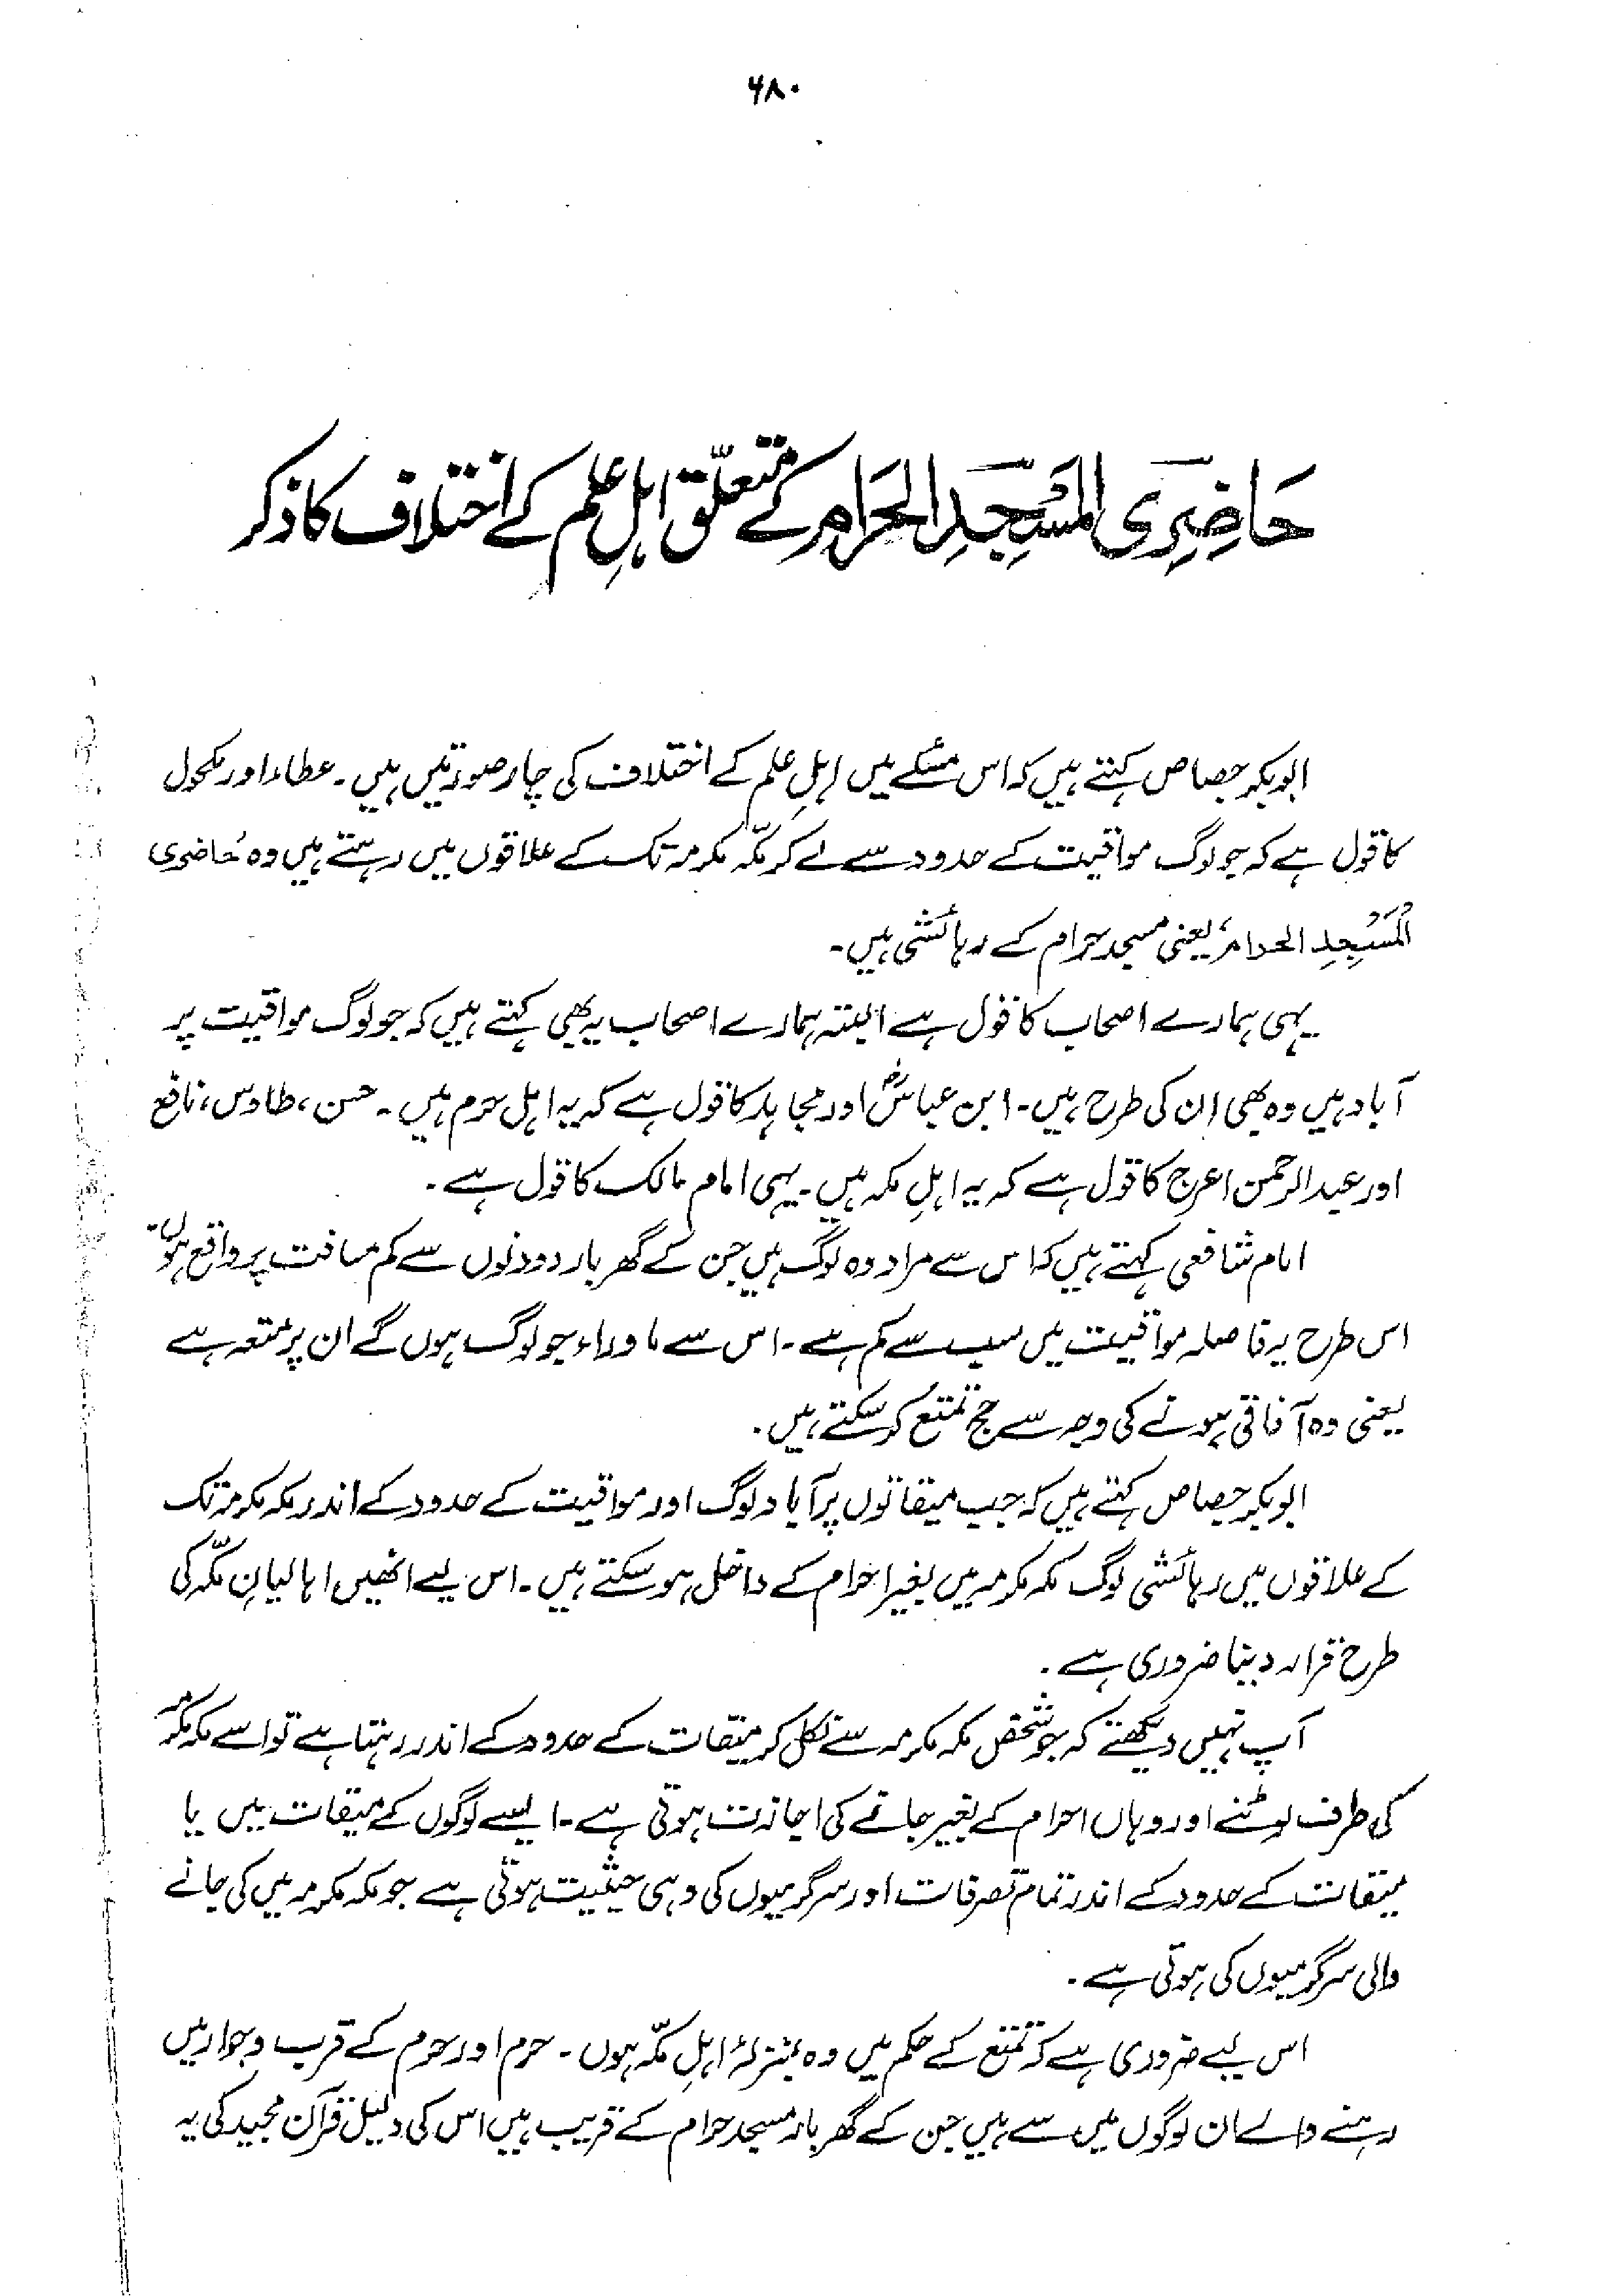 ۶۸۰
حَاضِرِی المَسْجِدِ الحَرَامِ کے متعلّق اہلِ علم کے اختلاف کا ذکر
ابوبکر جصاص کہتے ہیں کہ اس مسئلے میں اہلِ علم کے اختلاف کی چار صورتیں ہیں۔ عطاء اور مکحول
کا قول ہے کہ جو لوگ مواقیت کے حدود سے لے کر مکّہ مکرمہ تک کے علاقوں میں رہتے ہیں وہ حَاضری
المَسْجِدِ الحرام، یعنی مسجد حرام کے رہائشی ہیں۔
یہی ہمارے اصحاب کا قول ہے البتہ ہمارے اصحاب یہ بھی کہتے ہیں کہ جو لوگ مواقیت پر
آباد ہیں وہ بھی اِن کی طرح ہیں۔ ابن عباسؓ اور مجاہد کا قول ہے کہ یہ اہلِ حرم ہیں۔ حسن، طاوس، نافع
اور عبدالرحمن اعرج کا قول ہے کہ یہ اہلِ مکہ ہیں۔ یہی امام مالک کا قول ہے۔
امام شافعی کہتے ہیں کہ اس سے مراد وہ لوگ ہیں جن کے گھر بار دو دنوں سے کم مسافت پر واقع ہوں۔
اس طرح یہ فاصلہ مواقیت میں سب سے کم ہے۔ اس سے ماوراء جو لوگ ہوں گے ان پر متعہ ہے
یعنی وہ آفاقی ہونے کی وجہ سے حج تمتع کر سکتے ہیں۔
ابوبکر جصاص کہتے ہیں کہ جب میقاتوں پر آباد لوگ اور مواقیت کے حدود کے اندر مکہ مکرمہ تک
کے علاقوں میں رہائشی لوگ مکہ مکرمہ میں بغیر احرام کے داخل ہو سکتے ہیں۔ اس لیے انھیں اہالیانِ مکّہ کی
طرح قرار دینا ضروری ہے۔
آپ نہیں دیکھتے کہ جو شخص مکہ مکرمہ سے نکل کر میقات کے حدود کے اندر رہتا ہے تو اسے مکہ مکرمہ
کی طرف لوٹنے اور وہاں احرام کے بغیر جانے کی اجازت ہوتی ہے۔ ایسے لوگوں کے میقات میں یا
میقات کے حدود کے اندر تمام تصرفات اور سرگرمیوں کی وہی حیثیت ہوتی ہے جو مکہ مکرمہ میں کی جانے
والی سرگرمیوں کی ہوتی ہے۔
اس لیے ضروری ہے کہ تمتع کے حکم میں وہ بمنزلۂ اہلِ مکّہ ہوں۔ حرم اور حرم کے قرب و جوار میں
رہنے والے ان لوگوں میں سے ہیں جن کے گھر بار مسجد حرام کے قریب ہیں اس کی دلیل قرآن مجید کی یہ